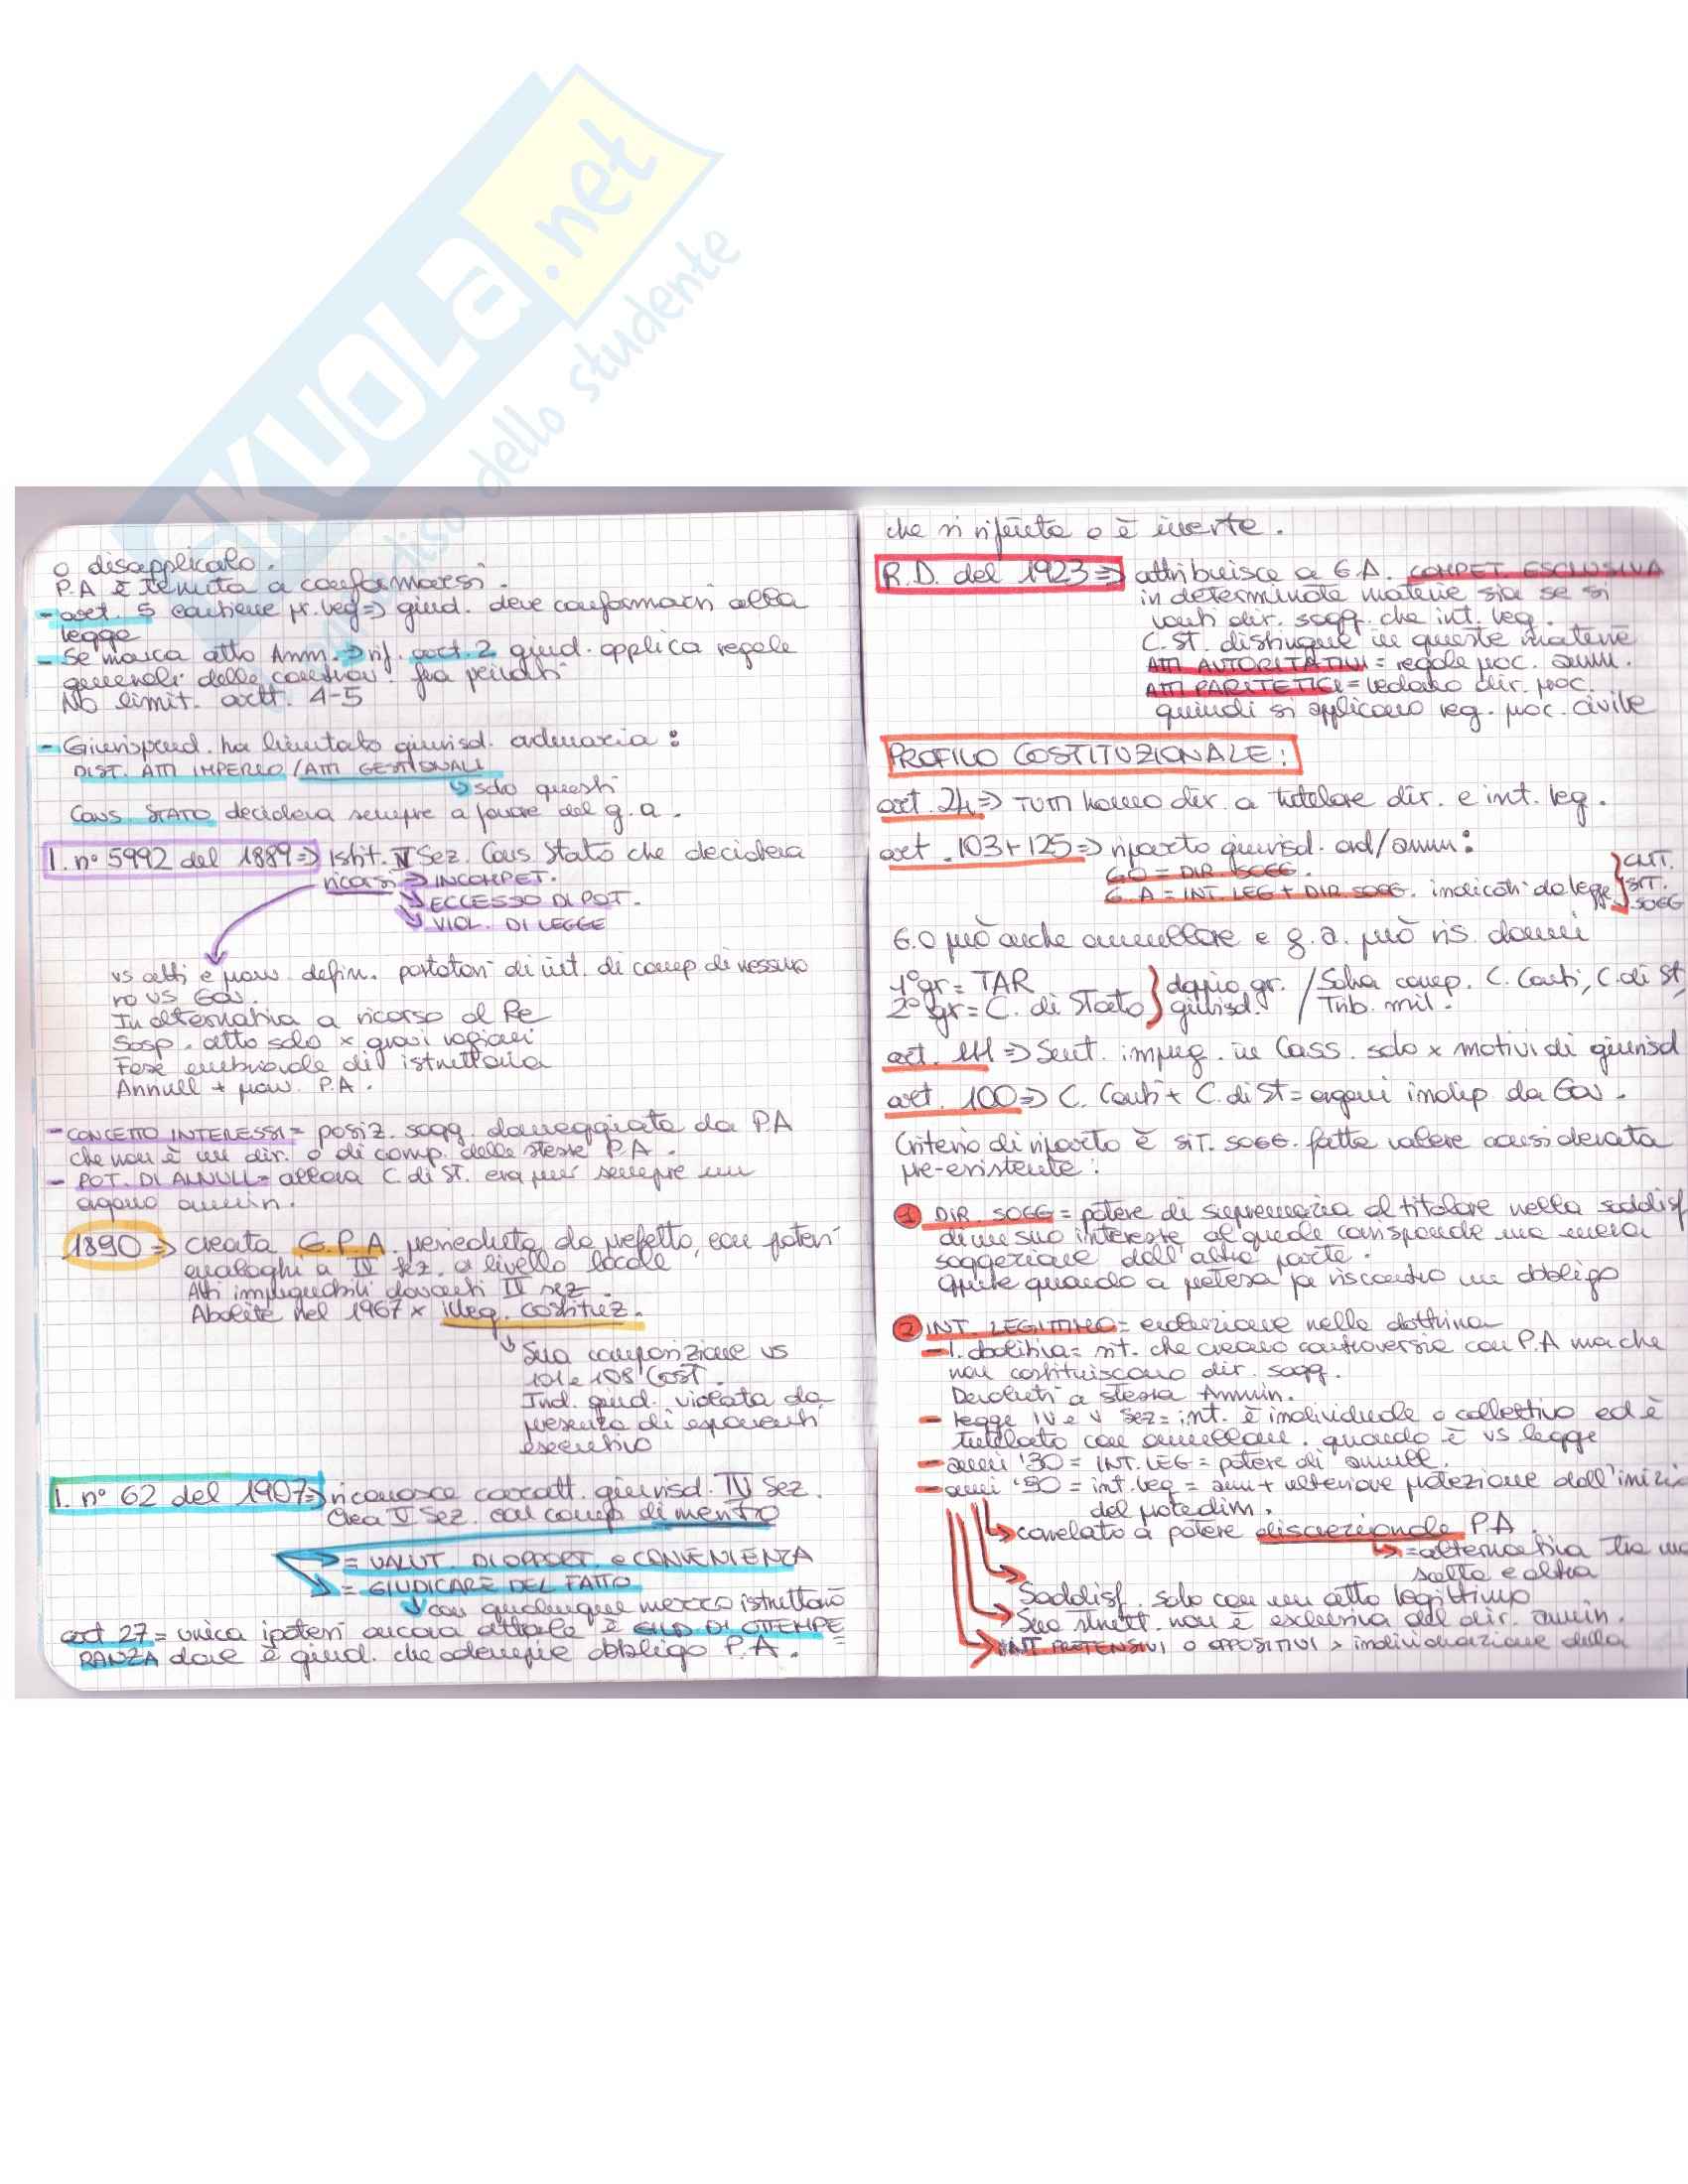 SKUOLA.net
paradiso dello studente
o disapplicalo.
P.A è tenuta a conformarsi.
- art. 5 contiene pr. leg => giud. deve conformarsi alla
legge
- Se manca atto Amm. => rif. art. 2 giud. applica regole
generali delle controv. fra privati
No limit. artt. 4-5
- Giurisprud. ha limitato giurisd. ordinaria:
DIST. ATTI IMPERIO / ATTI GESTIONALI
solo questi
Cons STATO decideva sempre a favore del g.a.
l. n° 5992 del 1889 => Istit. IV Sez. Cons. Stato che decideva
ricorsi -> INCOMPET.
ECCESSO DI POT.
VIOL. DI LEGGE
vs atti e provv. defin. portatori di int. di comp. di nessuno
no vs Gov.
In alternativa a ricorso al Re
Sosp. atto solo x gravi ragioni
Fase embrionale di istruttoria
Annull + provv. P.A.
- CONCETTO INTERESSI = posiz. sogg. danneggiata da PA
che non è un dir. o di comp. della stessa P.A.
- POT. DI ANNULL = allora C. di St. era pur sempre un
organo ammin.
1890 => creata G.P.A. presieduta da prefetto, con poteri
analoghi a IV sez. a livello locale
Atti impugnabili davanti IV sez.
Abolite nel 1967 x illeg. costituz.
Sua composizione vs
101 e 108 Cost.
Ind. giud. violata da
presenza di esponenti
esecutivo
l. n° 62 del 1907 => riconosce caratt. giurisd. IV Sez.
Crea V Sez. con comp di merito
= VALUT. DI OPPORT. e CONVENIENZA
= GIUDICARE DEL FATTO
con qualunque mezzo istruttorio
art 27 = unica ipotesi ancora attuale è GIUD. DI OTTEMPE
RANZA dove è giud. che adempie obbligo P.A.
che si rifiuta o è inerte.
R.D. del 1923 => attribuisce a G.A. COMPET. ESCLUSIVA
in determinate materie sia se si
vanti dir. sogg. che int. leg.
C. St. distingue in queste materie
ATTI AUTORITATIVI = regole proc. amm.
ATTI PARITETICI = ledono dir. proc.
quindi si applicano reg. proc. civile
PROFILO COSTITUZIONALE:
art. 24 => TUTTI hanno dir. a tutelare dir. e int. leg.
art. 103 + 125 => riparto giurisd. ord/amm:
G.O = DIR. SOGG.
G.A = INT. LEG + DIR. SOGG. indicati da legge
SIT.
SOGG
G.O può anche annullare e g.a. può ris. danni
1° gr = TAR
2° gr = C. di Stato } doppio gr. giurisd. / Salva comp. C. Conti, C. di St,
Trib. mil.
art. 111 => Sent. impug. in Cass. solo x motivi di giurisd
art. 100 => C. Conti + C. di St = organi indip da Gov.
Criterio di riparto è SIT. SOGG. fatta valere considerata
pre-esistente:
1 DIR. SOGG = potere di supremazia al titolare nella soddisf
di un suo interesse al quale corrisponde una mera
soggezione dall'altra parte.
Anche quando a pretesa fa riscontro un obbligo
2 INT. LEGITTIMO = evoluzione nella dottrina
- l. abolitiva = sit. che creano controversie con P.A ma che
non costituiscono dir. sogg.
Devoluti a stessa Ammin.
- legge IV e V sez = int. è individuale o collettivo ed è
tutelato con annullam. quando è vs legge
- anni '30 = INT. LEG = potere di annull.
- anni '90 = int. leg = ann + ulteriore protezione dall'inizio
del procedim.
correlato a potere discrezionale P.A.
= alternativa tra una
scelta e altra
Soddisf. solo con un atto legittimo
Sua strutt. non è esclusiva del dir. ammin.
INT PRETENSIVI o OPPOSITIVI > individuazione della